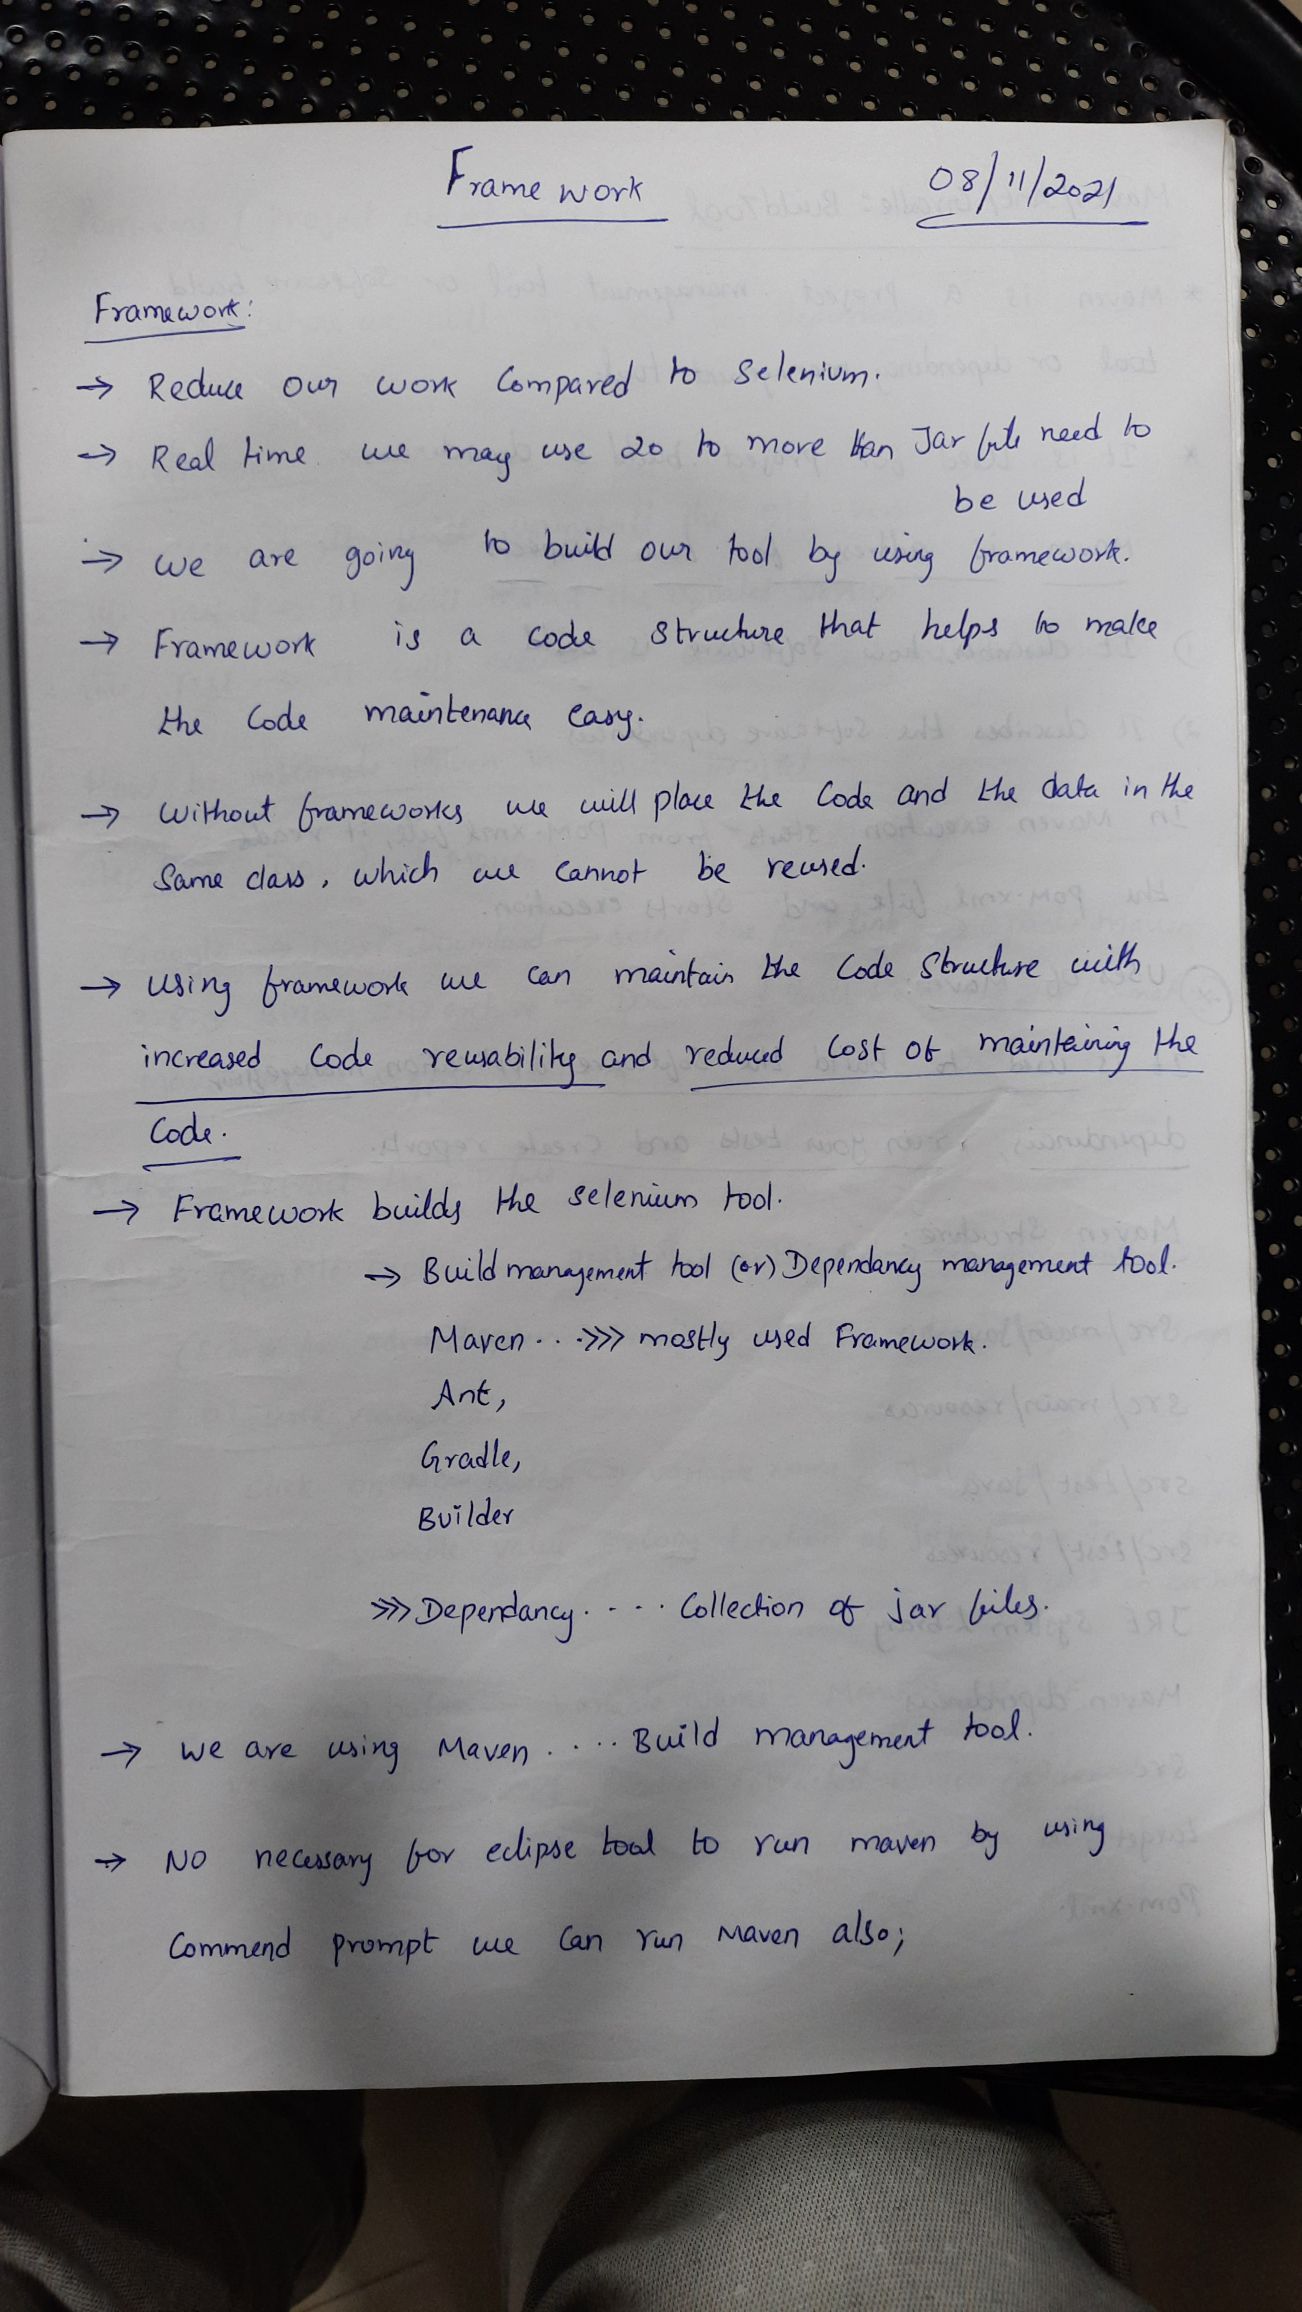 Frame work 08/11/2021
Framework:
→ Reduce our work Compared to Selenium.
→ Real time we may use 20 to more than Jar file need to
be used
→ we are going to build our tool by using framework.
→ Framework is a code structure that helps to make
the code maintenance easy.
→ without frameworks we will place the code and the data in the
Same class, which we cannot be reused.
→ using framework we can maintain the code structure with
increased code reusability and reduced cost of maintaining the
Code.
→ Framework builds the selenium tool.
→ Build management tool (or) Dependancy management tool.
Maven . . . >>> mostly used Framework.
Ant,
Gradle,
Builder
>>> Dependancy . - - . . Collection of jar files.
→ we are using Maven . . . . . Build management tool.
→ No necessary for eclipse tool to run maven by using
Commend prompt we can run Maven also;